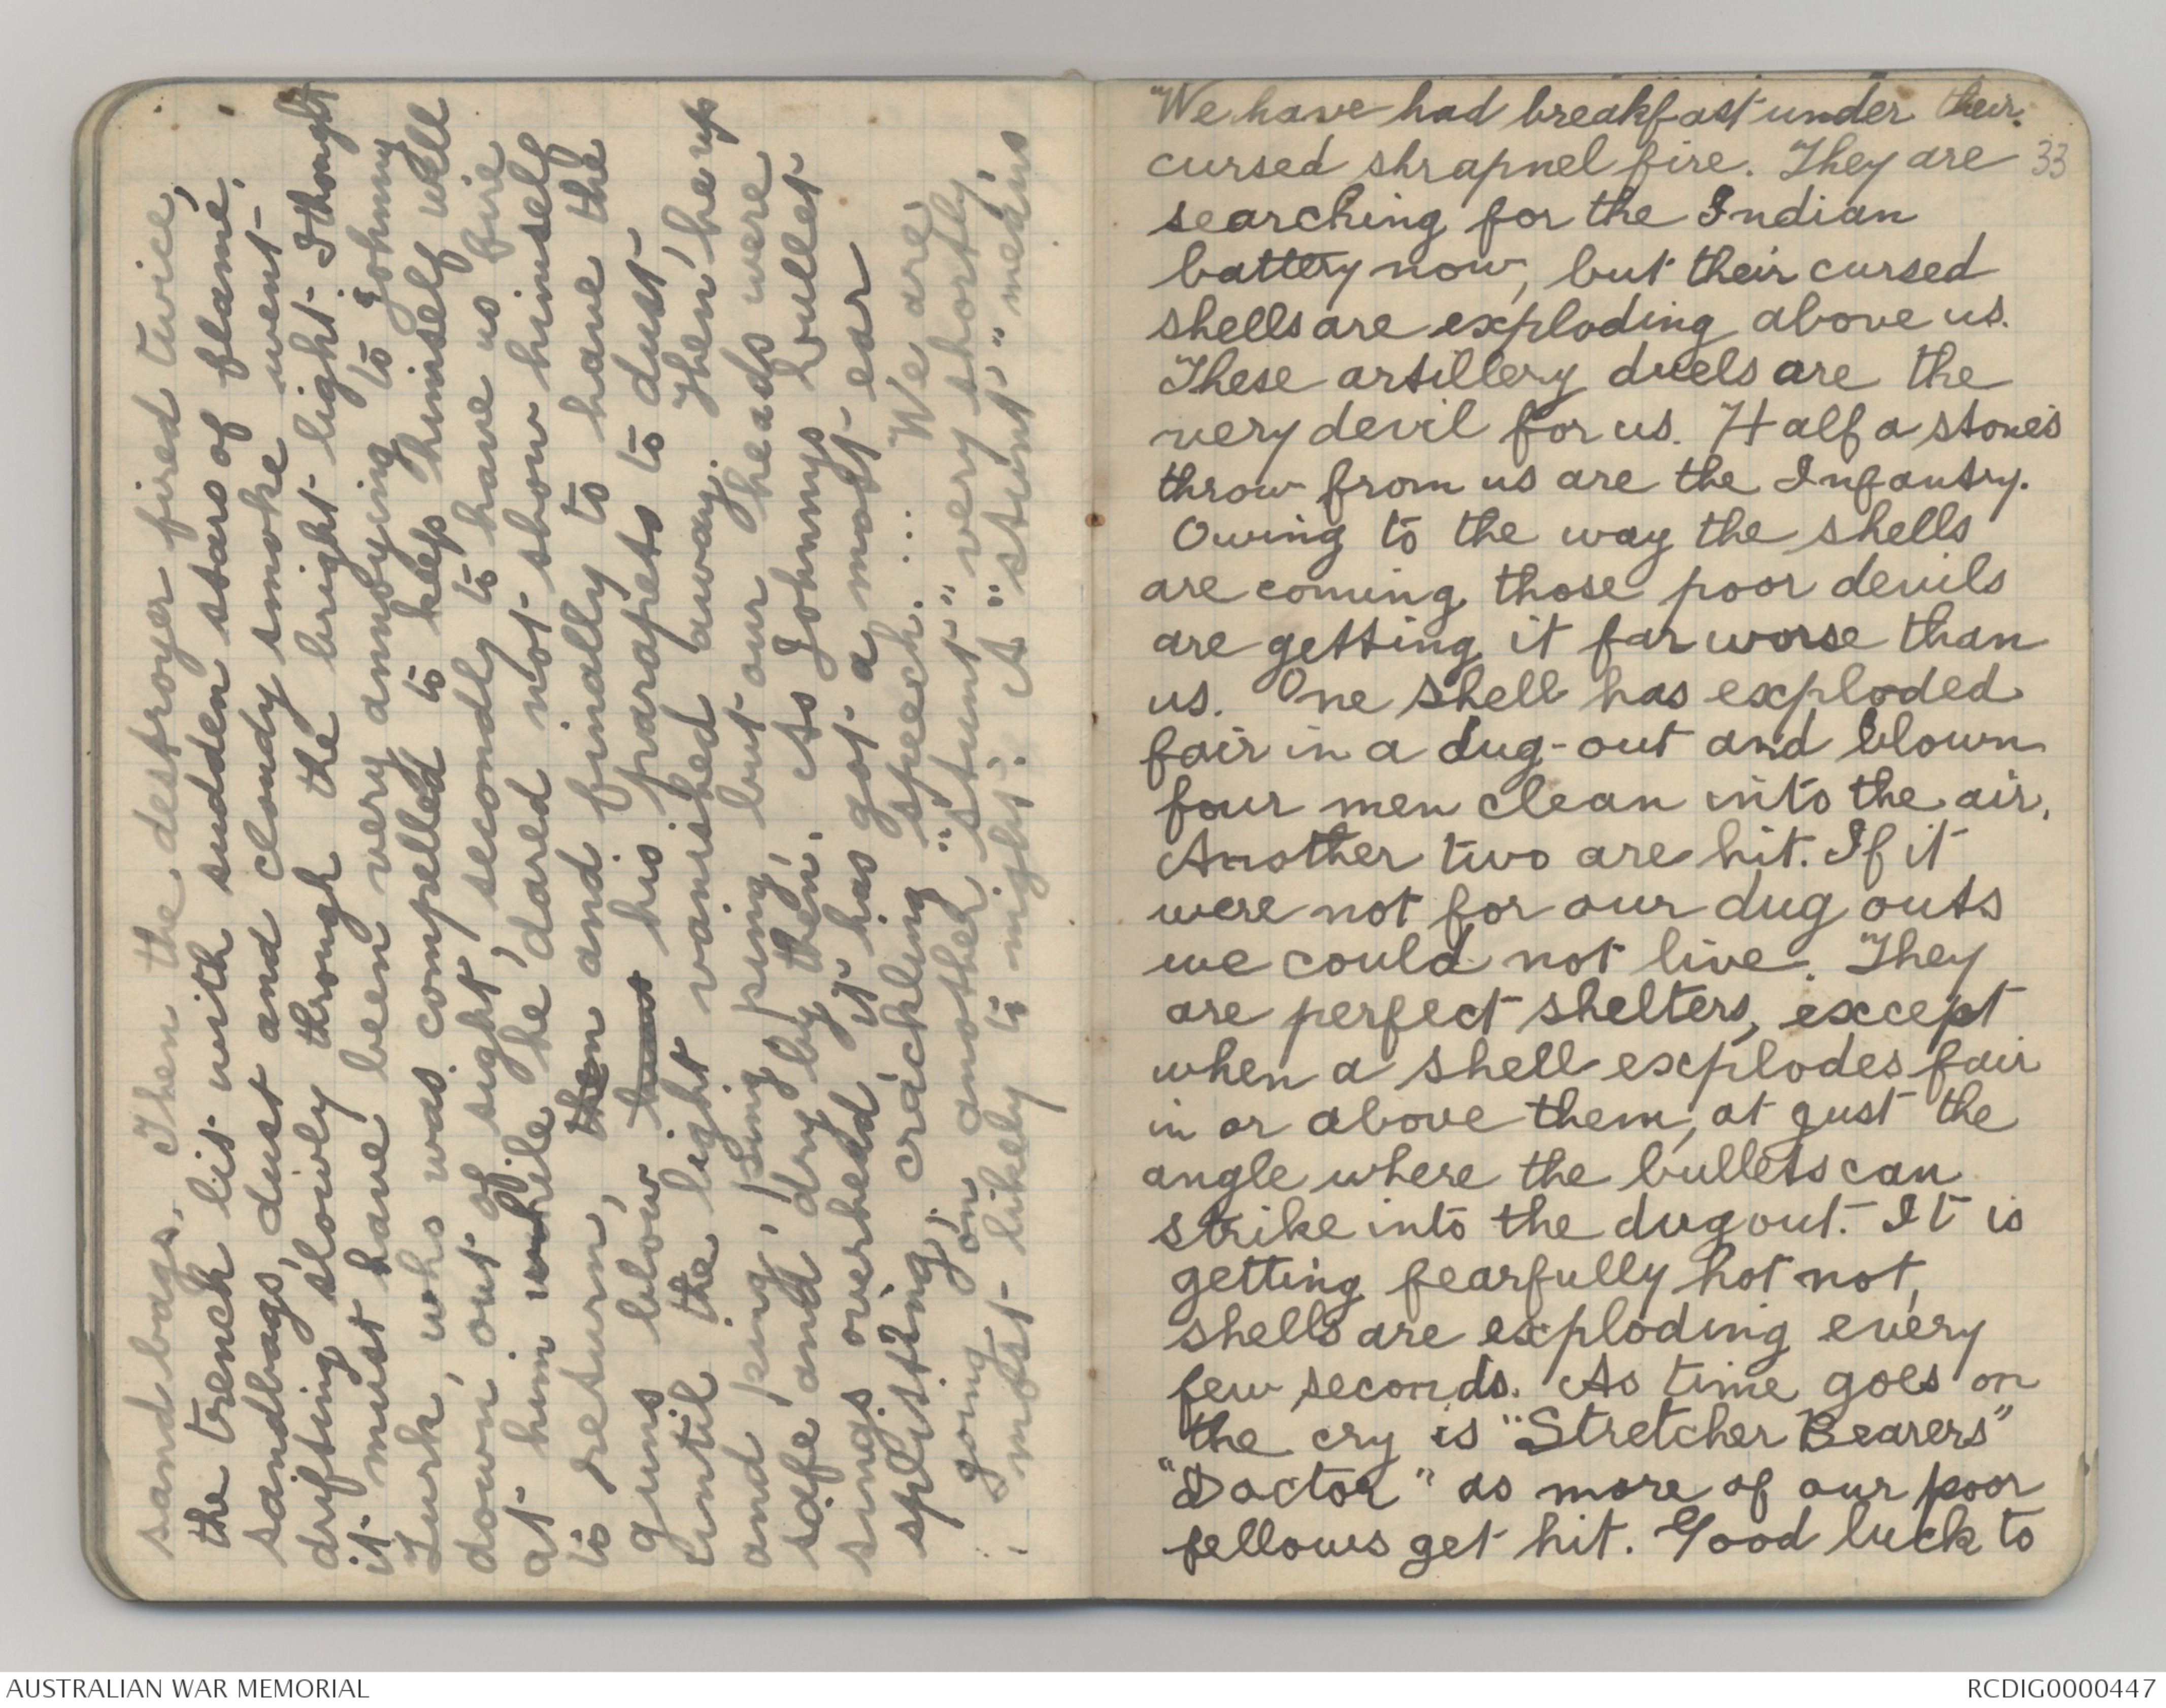 sandbags. Then the destroyer fired twice,
the trench lit with sudden stars of flame,
sandbags, dust and cloudy smoke went
drifting slowly through the bright light. I thought
it must have been very annoying to Johnny
Turk, who was compelled to keep himself well
down, out of sight, secondly to have us fire
at him while he dared not show himself
to return, then and finally to have the
guns blow his parapets to dust,
until the light vanished away. Then he up
and ping, ping, ping, but our heads were
safe and dry by then. As Johnnys bullet
sings overhead it has got a most ear
splitting, crackling "speech." ... We are
going on another "stunt" very shortly,
most likely to night. A "stunt" means
"We have had breakfast under their
cursed shrapnel fire. They are
33
searching for the Indian
battery now, but their cursed
shells are exploding above us.
These artillery duels are the
very devil for us. Half a stone's
throw from us are the Infantry.
Owing to the way the shells
are coming those poor devils
are getting it far worse than
us. One shell has exploded
fair in a dug-out and blown
four men clean into the air.
Another two are hit. If it
were not for our dug outs
we could not live. They
are perfect shelters, except
when a shell explodes fair
in or above them, at just the
angle where the bullets can
strike into the dugout. It is
getting fearfully hot not,
shells are exploding every
few seconds. As time goes on
the cry is "Stretcher Bearers"
"Doctor" as more of our poor
fellows get hit. Good luck to
AUSTRALIAN WAR MEMORIAL
RCDIG0000447